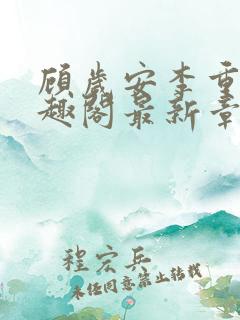 顾岁安李重
趣阁最新章
程宏兵
未经同意禁止转载